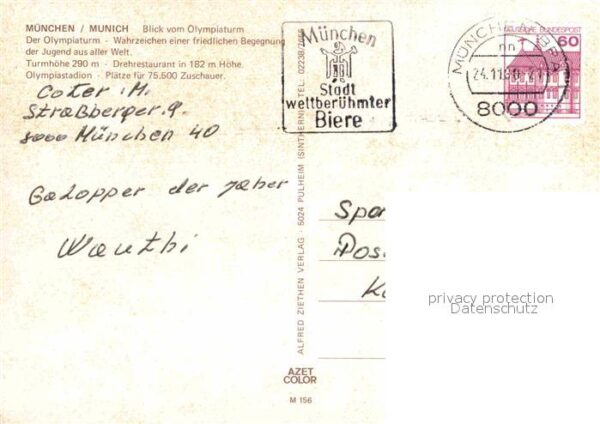 MÜNCHEN / MUNICH Blick vom Olympiaturm
Der Olympiaturm - Wahrzeichen einer friedlichen Begegnung
der Jugend aus aller Welt.
Turmhöhe 290 m · Drehrestaurant in 182 m Höhe.
Olympiastadion - Plätze für 75.600 Zuschauer.
Coter M.
Straßberger. 9.
8000 München 40
Galopper der Jaher
Wauthi
München
Stadt
weltberühmter
Biere
MÜNCHEN
24.11.80-21
8000
DEUTSCHE BUNDESPOST
60
ALFRED ZIETHEN VERLAG · 5024 PULHEIM (SINTHERN) · TEL. 02238/
Spo
Pos
Ko
privacy protection
Datenschutz
AZET
COLOR
M 156